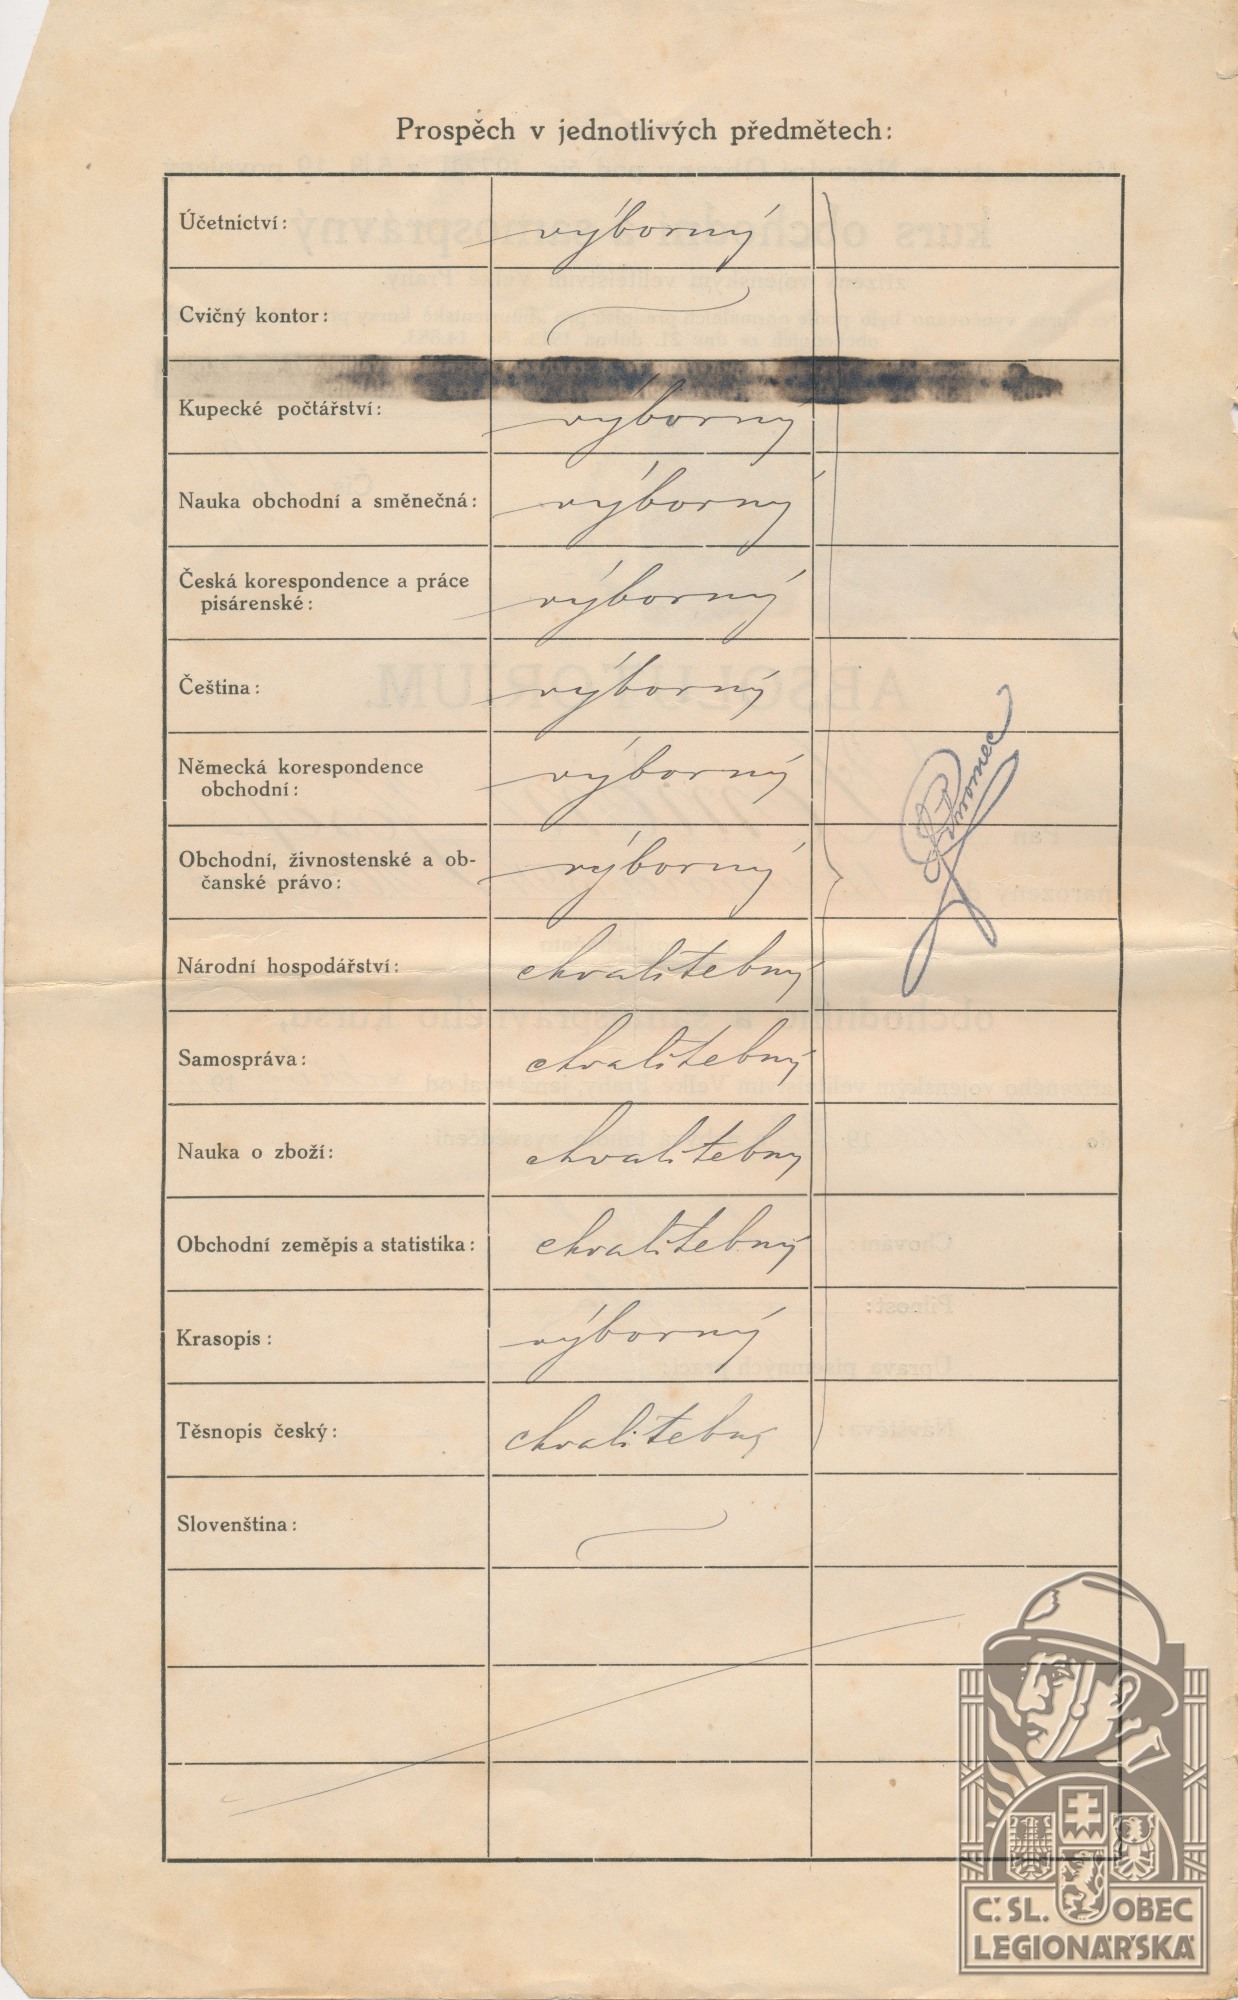 Prospěch v jednotlivých předmětech:
Účetnictví: výborný
Cvičný kontor:
Kupecké počtářství: výborný
Nauka obchodní a směnečná: výborný
Česká korespondence a práce
pisárenské: výborný
Čeština: výborný
Německá korespondence
obchodní: výborný
Obchodní, živnostenské a ob-
čanské právo: výborný
Národní hospodářství: chvalitebný
Samospráva: chvalitebný
Nauka o zboží: chvalitebný
Obchodní zeměpis a statistika: chvalitebný
Krasopis: výborný
Těsnopis český: chvalitebný
Slovenština:
Č. SL. OBEC
LEGIONÁŘSKÁ